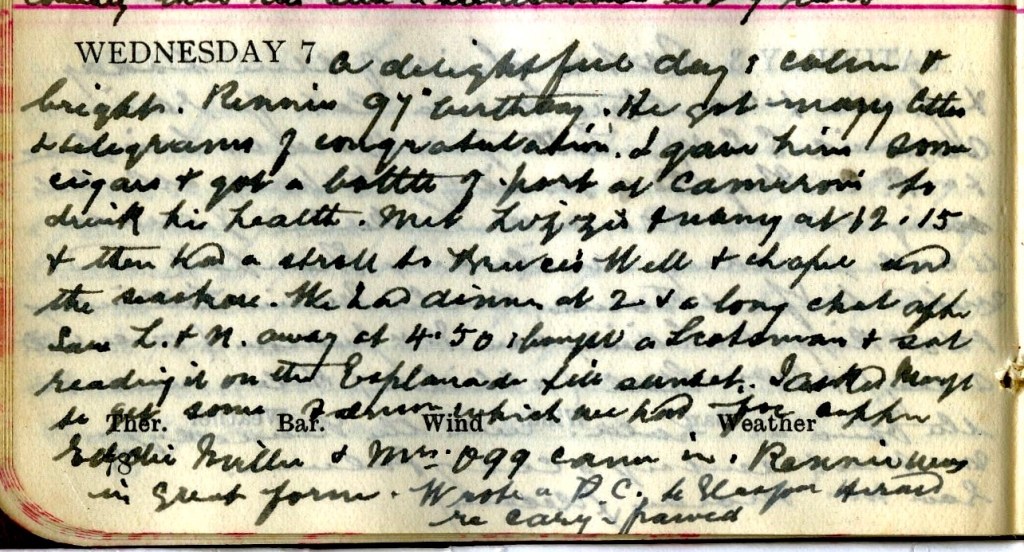 WEDNESDAY 7
A delightful day: calm &
bright. Rennie's 97th birthday. He got many letters
& telegrams of congratulation. I gave him some
cigars & got a bottle of port at Cameron's to
drink his health. Met & Nany at 12.15
& then had a stroll to Bruce's Well & chapel and
the seashore. We had dinner at 2 & a long chat after
Saw L. & N. away at 4.50: bought a Scotsman & sat
reading it on the Esplanade till sunset. I asked
to get some which we had for supper
Ther. Bar. Wind Weather
Miller & Mrs. Ogg came in. Rennie was
in great form. Wrote a P.C. to Glasgow Herald
re